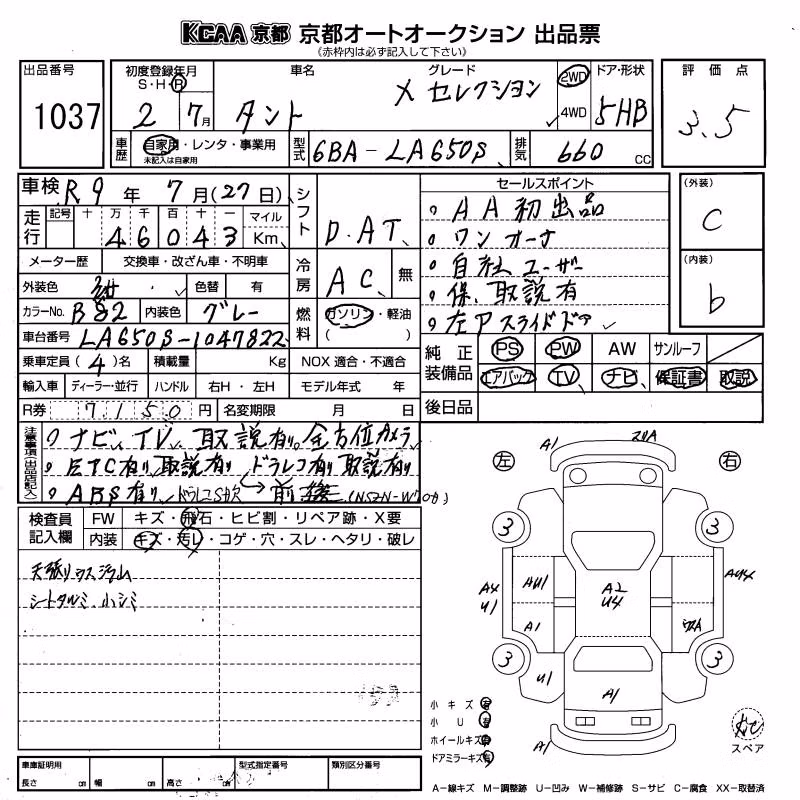 KCAA 京都 京都オートオークション 出品票
(赤枠内は必ず記入して下さい)
出品番号 1037
初度登録年月 S・H・R 2 7月
車名 タント
グレード X セレクション
2WD 4WD
ドア・形状 5HB
評価点 3.5
車歴 自家用・レンタ・事業用 未記入は自家用
型式 6BA-LA650S
排気 660 CC
車検 R9年 7月(27日)
走行 記号 十 万 千 百 十 一 マイル Km
46043
シフト D.AT
メーター歴 交換車・改ざん車・不明車
外装色 紺 色替 有
冷房 AC 無
カラーNo. B82 内装色 グレー
燃料 ガソリン・軽油 ( )
車台番号 LA650S-1047822
乗車定員 (4)名 積載量 Kg NOX 適合・不適合
輸入車 ディーラー・並行 ハンドル 右H・左H モデル年式 年
R券 7150円 名変期限 月 日
セールスポイント
。AA初出品
。ワンオーナ
。自社ユーザー
。保、取説有
。左Pスライドドア
(外装) C
(内装) b
純正装備品 PS PW AW サンルーフ
エアバック TV ナビ 保証書 取説
後日品
注意事項(出品店記入)
ナビ、TV、取説有り。全方位カメラ
ETC有り取説有り ドラレコ有り取説有り
ABS有り ドラレコSD欠 前後
検査員記入欄 FW キズ・飛石・ヒビ割・リペア跡・X要
内装 キズ・汚レ・コゲ・穴・スレ・ヘタリ・破レ
天張りウスジラム
シートタルミ、小シミ
左 右
A1
3 3
A4 U1
AU1
A2 U4
AU4
A1
3 3
U1
A1
A1
小キズ 有
小U 有
ホイールキズ 有
ドアミラーキズ 有
スペア
車庫証明用 長さ cm 幅 cm 高さ cm
型式指定番号
類別区分番号
A-線キズ M-調整跡 U-凹み W-補修跡 S-サビ C-腐食 XX-取替済